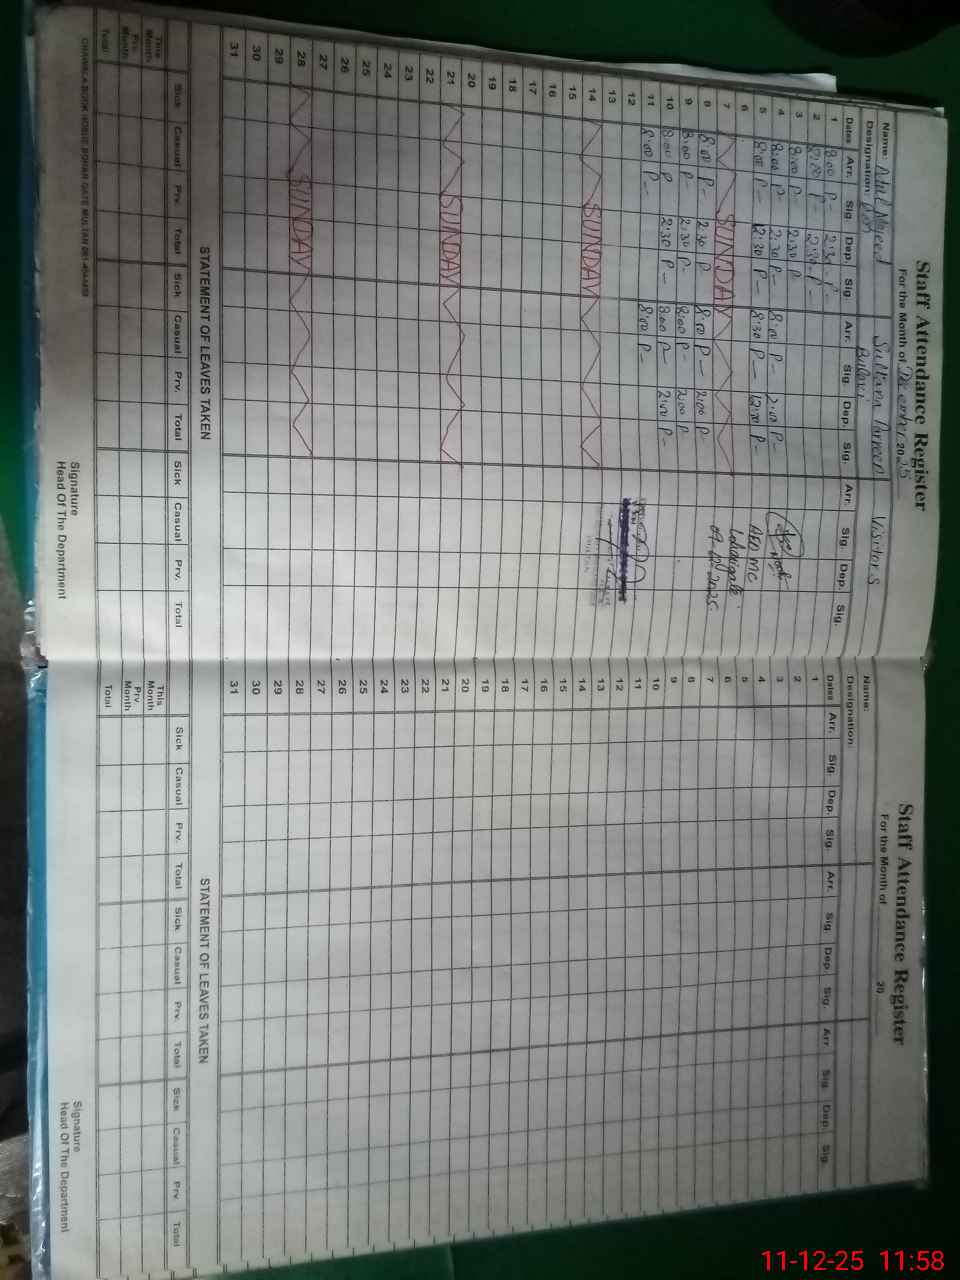 Staff Attendance Register
For the Month of December 2025
Name: Sultana Parveen Visitors
Designation:
Dates Arr. Sig. Dep. Sig. Arr. Sig. Dep. Sig. Arr. Sig. Dep. Sig.
1 8:00 P- 2:30 P-
2 8:00 P- 2:30 P-
3 8:00 P- 2:30 P
4 8:00 P- 2:30 P- 8:00 P- 2:00 P-
5 8:00 P- 12:30 P- 8:30 P- 12:30 P-
6
7 SUNDAY
8 8:00 P- 2:30 P 8:00 P- 2:00 P-
9 8:00 P- 2:30 P- 8:00 P- 2:00 P
10 8:00 P 2:30 P- 8:00 P- 2:00 P-
11 8:00 P- 8:00 P-
12
13
14 SUNDAY
15
16
17
18
19
20
21 SUNDAY
22
23
24
25
26
27
28 SUNDAY
29
30
31
STATEMENT OF LEAVES TAKEN
Sick Casual Prv. Total Sick Casual Prv. Total Sick Casual Prv. Total
This Month
Prv. Month
Total
Signature
Head Of The Department
CHANNEL-A-BOOK HOUSE BOHAR GATE MULTAN
Staff Attendance Register
For the Month of 20
Name:
Designation:
Dates Arr. Sig. Dep. Sig. Arr. Sig. Dep. Sig. Arr. Sig. Dep. Sig.
1
2
3
4
5
6
7
8
9
10
11
12
13
14
15
16
17
18
19
20
21
22
23
24
25
26
27
28
29
30
31
STATEMENT OF LEAVES TAKEN
Sick Casual Prv. Total Sick Casual Prv. Total Sick Casual Prv. Total
This Month
Prv. Month
Total
Signature
Head Of The Department
11-12-25 11:58